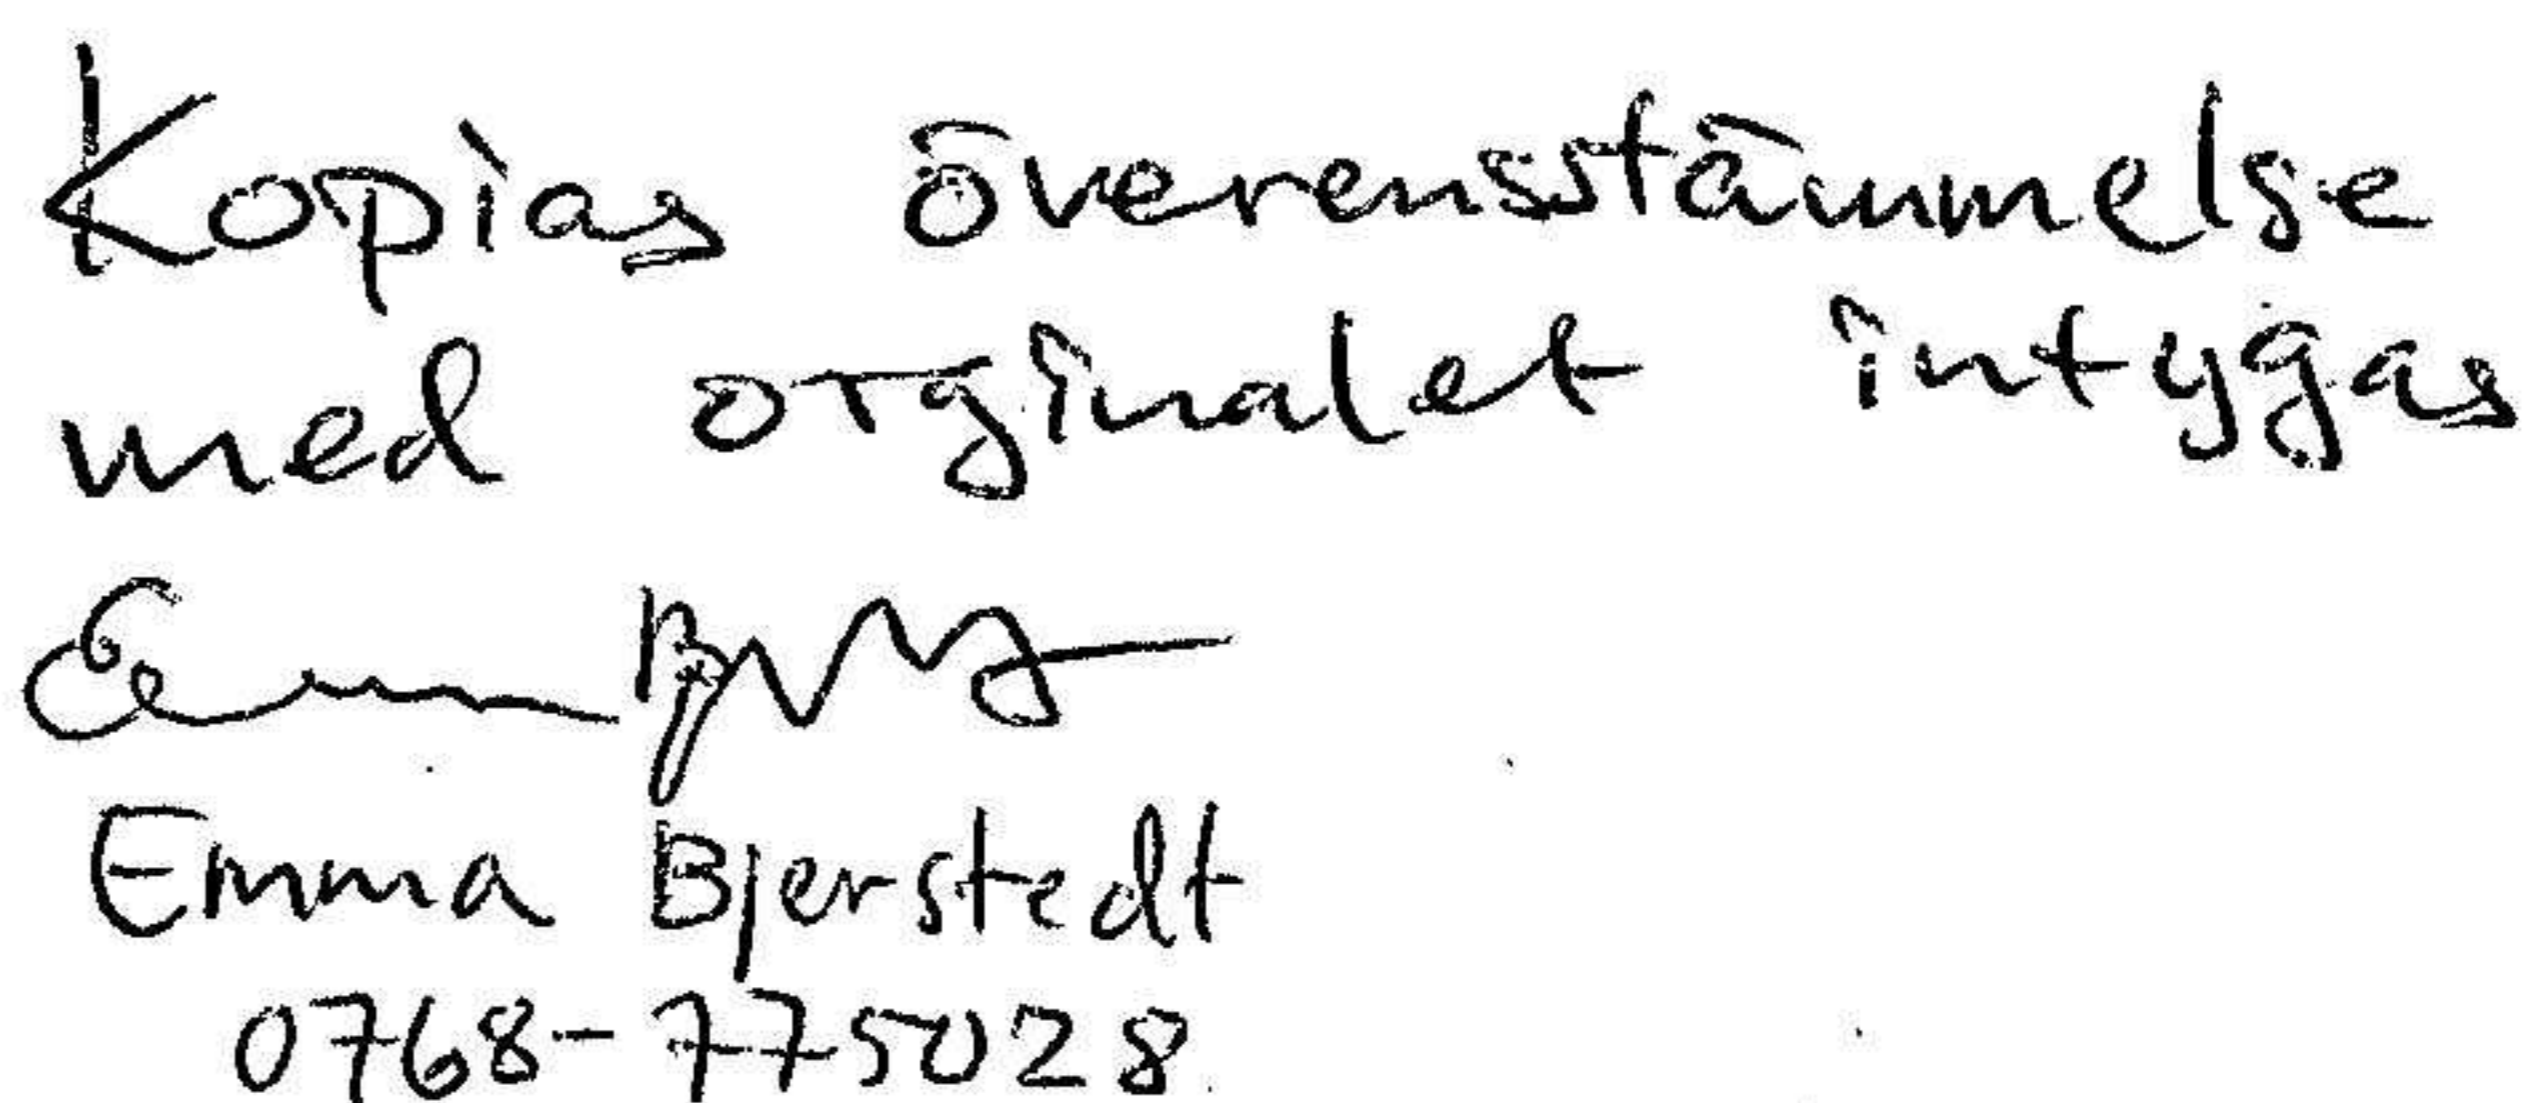 Kopias överensstämmelse
med orginalet intygas
Emma Bjerstedt
0768-775028